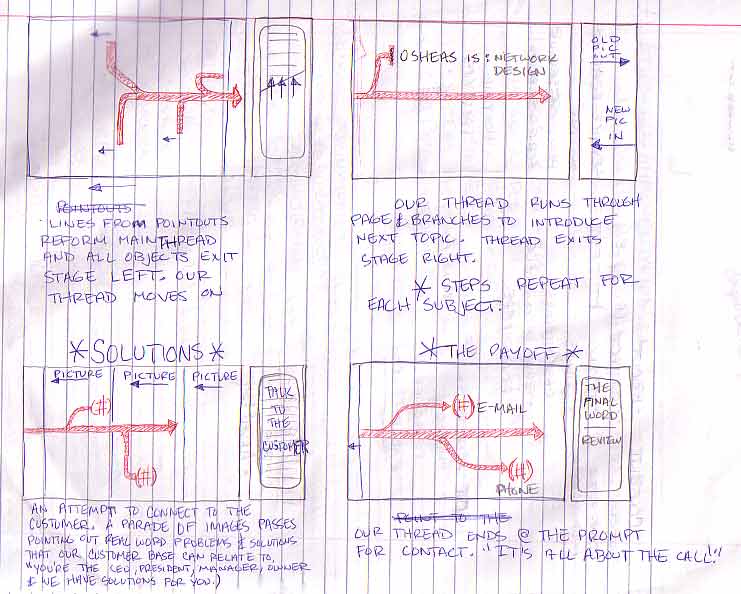 OSHEAS IS: NETWORK
DESIGN
OLD
PIC
OUT
NEW
PIC
IN
POINTOUTS
LINES FROM POINTOUTS
REFORM MAINTHREAD
AND ALL OBJECTS EXIT
STAGE LEFT. OUR
THREAD MOVES ON
OUR THREAD RUNS THROUGH
PAGE & BRANCHES TO INTRODUCE
NEXT TOPIC. THREAD EXITS
STAGE RIGHT.
* STEPS REPEAT FOR
EACH SUBJECT.
*SOLUTIONS*
PICTURE PICTURE PICTURE
(#)
(#)
TALK
TO
THE
CUSTOMER
AN ATTEMPT TO CONNECT TO THE
CUSTUMER. A PARADE OF IMAGES PASSES
POINTING OUT REAL WORD PROBLEMS & SOLUTIONS
THAT OUR CUSTOMER BASE CAN RELATE TO.
"YOU'RE THE CEO, PRESIDENT, MANAGER, OWNER
& WE HAVE SOLUTIONS FOR YOU.)
*THE PAYOFF*
(#) E-MAIL
(#)
PHONE
THE
FINAL
WORD
REVIEW
POINT TO THE
OUR THREAD ENDS @ THE PROMPT
FOR CONTACT. "IT'S ALL ABOUT THE CALL!"